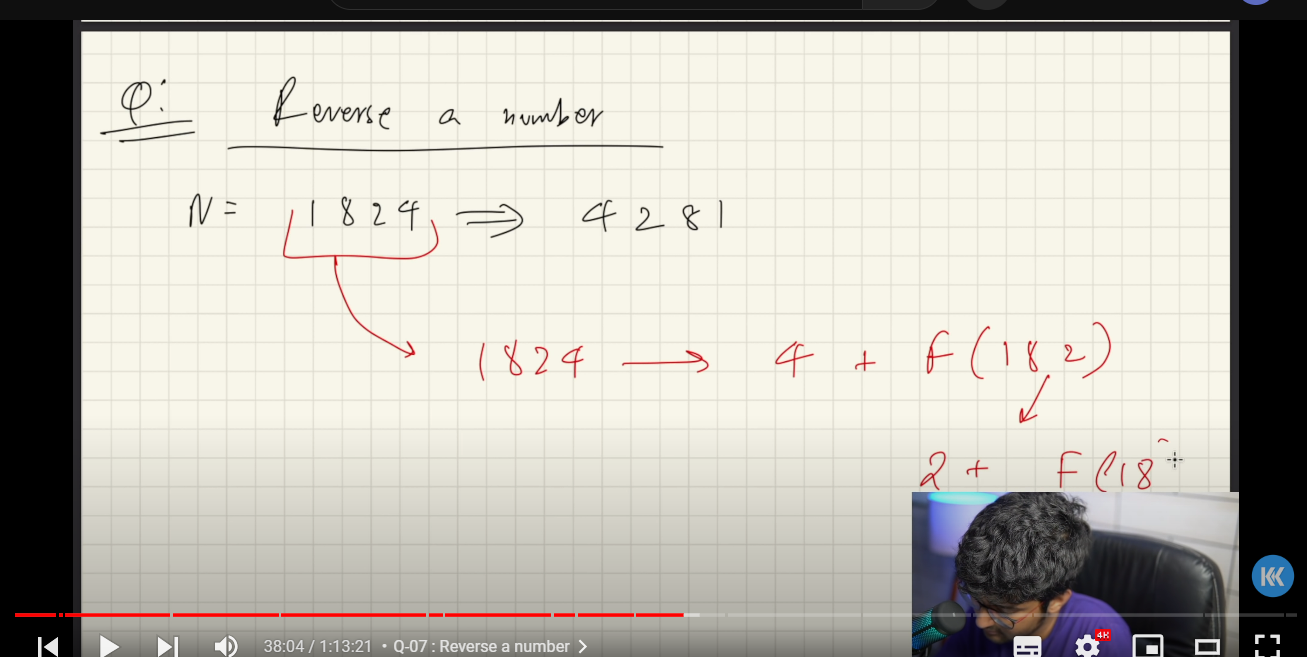 Q: Reverse a number
N = 1824 ⇒ 4281
1824 → 4 + F(182)
2 + F(18
38:04 / 1:13:21 • Q-07 : Reverse a number >
4K